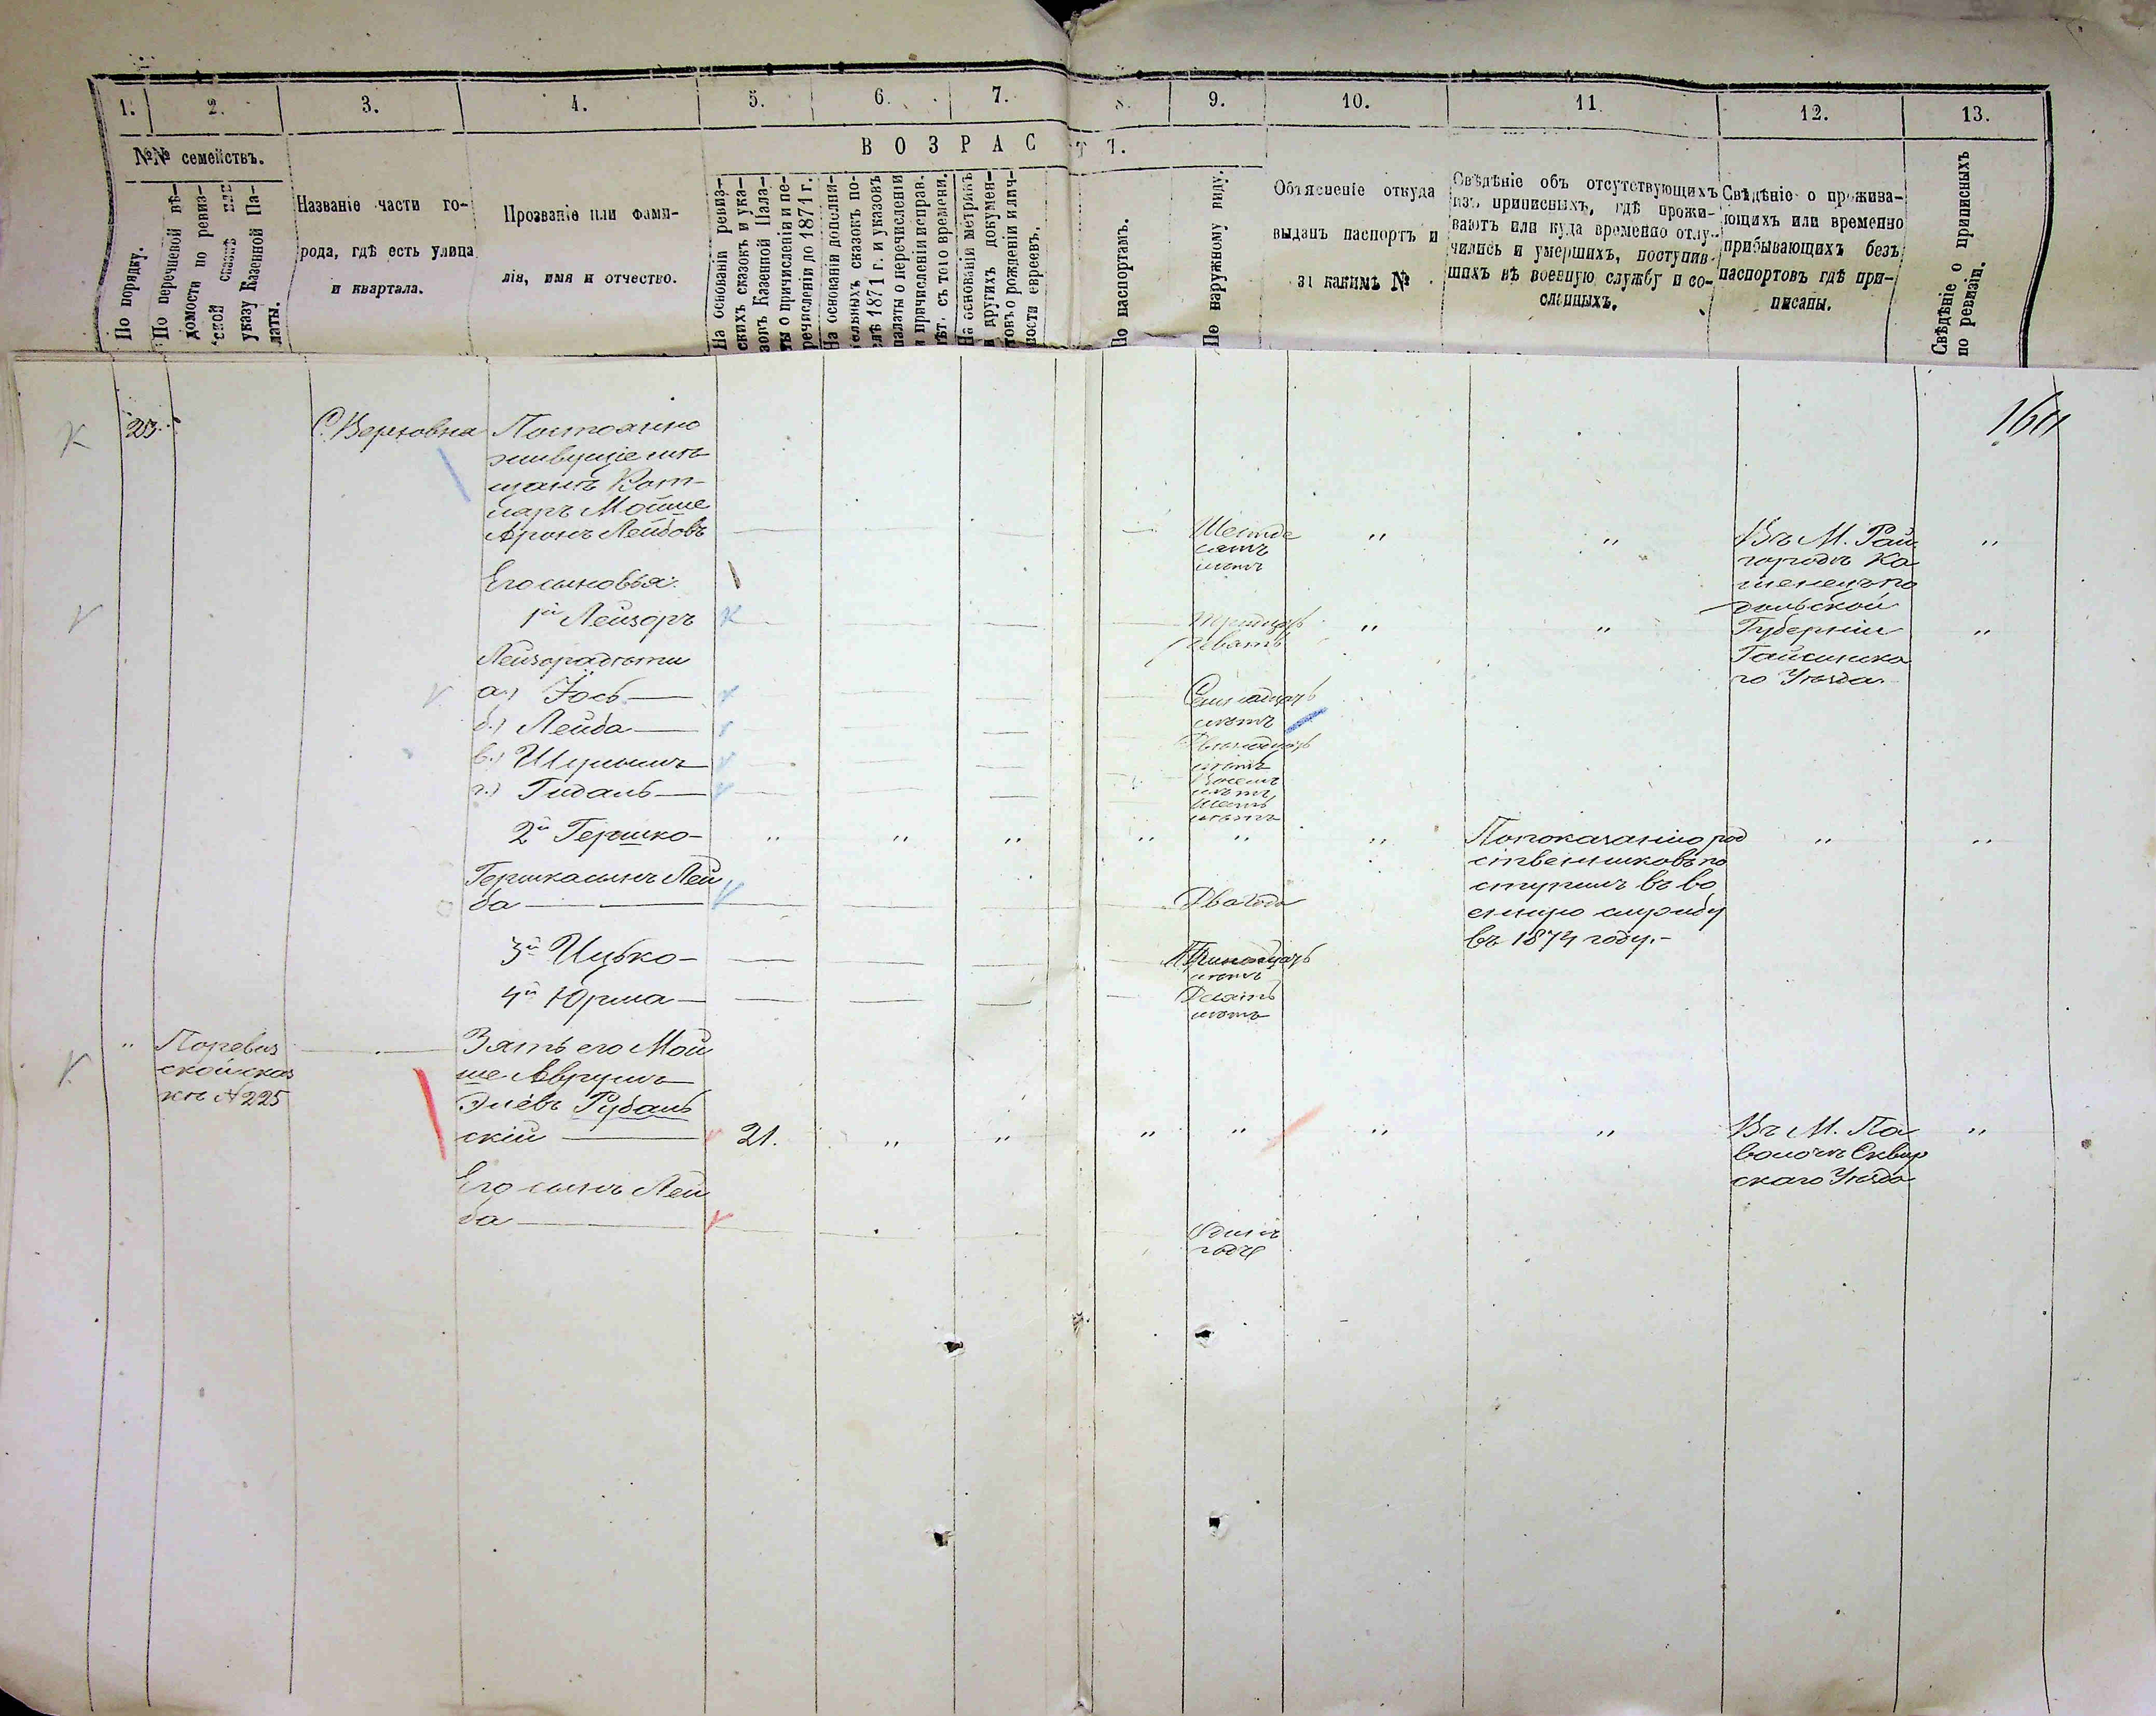 1.
2.
3.
4.
5.
6.
7.
8.
9.
10.
11.
12.
13.
№№ семействъ.
ВОЗРАСТЪ.
По порядку.
По перечневой вѣ-
домости по ревиз-
ской сказкѣ или
указу Казенной Па-
латы.
Названіе части го-
рода, гдѣ есть улица
и квартала.
Прозваніе или фами-
лія, имя и отчество.
На основаніи ревиз-
скихъ сказокъ и ука-
зовъ Казенной Пала-
ты о причисленіи и пе-
речисленіи до 1871 г.
На основаніи дополни-
тельныхъ сказокъ по-
слѣ 1871 г. и указовъ
палаты о перечисленіи
и причисленіи исправ.
лѣт. съ того времени.
На основаніи метрикъ
и другихъ докумен-
товъ о рожденіи и лич-
ности евреевъ.
По паспортамъ.
По наружному виду.
Объясненіе откуда
выданъ паспортъ и
за какимъ №
Свѣдѣніе объ отсутствующихъ
изъ приписныхъ, гдѣ прожи-
ваютъ или куда временно отлу-
чились и умершихъ, поступив-
шихъ въ военную службу и со-
сланныхъ.
Свѣдѣніе о прожива-
ющихъ или временно
прибывающихъ безъ
паспортовъ гдѣ при-
писаны.
Свѣдѣніе о приписныхъ
по ревизіи.
203.
С. Верховна
Постоянно
живущіе мѣ
щанъ
Мойше
Аронъ Лейбовъ
Шестде
сятъ
лѣтъ
Въ М. Рай
городѣ Ка
менецъ по
дольской
Губерніи
Гайсинска
го Уѣзда
Его сыновья:
1й Лейзоръ
Тридцать
девять
Лейзора дѣти
а.) Іось
Семнадцать
лѣтъ
б.) Лейба
Двенадцать
лѣтъ
в.) Шулимъ
Восемь
лѣтъ
г.) Гидаль
Шесть
лѣтъ
2й Гершко
По показанію род
ственниковъ по
ступилъ въ во
енную службу
въ 1874 году.-
Гершка сынъ Лей
ба
Два года
3й Ицько
лѣтъ
4й Юрма
Десять
лѣтъ
По ревиз
ской сказ
кѣ № 225
Зять его Мой
ше Аврумъ
Элевъ Рубань
скій
21.
Въ М. Па
волочѣ Сквир
скаго Уѣзда
Его сынъ Лей
ба
Одинъ
годъ